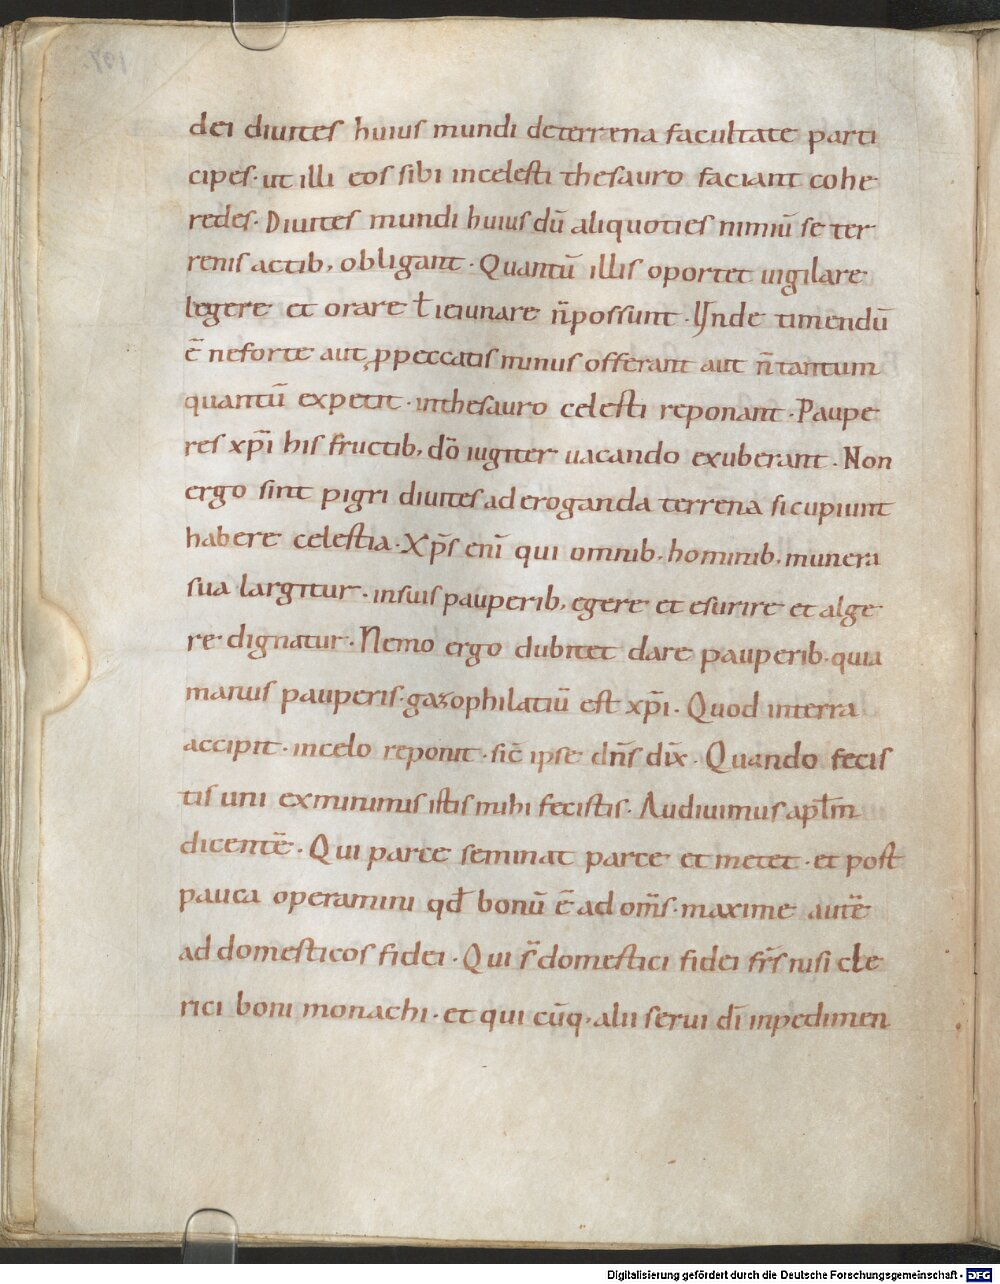 dei diuites huius mundi deterrena facultate parti
cipes· ut illi eos sibi incelesti thesauro faciant cohe
redes· Diuites mundi huius dū aliquoties nimiū se ter
renis actib; obligant· Quantū illis oportet uigilare
legere et orare ł ieiunare n̄possunt· Unde timendū
ē neforte aut ꝓpeccatis minus offerant aut n̄ tantum
quantū expetit· inthesauro celesti reponant· Paupe
res xp̄i his fructib; dō iugiter uacando exuberant· Non
ergo sint pigri diuites ad eroganda terrena si cupiunt
habere celestia· Xp̄s enī qui omnib; hominib; munera
sua largitur· insuis pauperib; egere et esurire et alge
re dignatur· Nemo ergo dubitet dare pauperib· quia
manus pauperis· gazophilatiū est xp̄i· Quod interra
accipit· incelo reponit· sic̄ ipse dn̄s dix̄· Quando fecis
tis uni exminimis istis mihi fecistis· Audiuimus apłm
dicentē· Qui parce seminat parce et metet· et post
pauca operamini qđ bonū ē ad om̄s· maxime autē
ad domesticos fidei· Qui s̄ domestici fidei fr̄s nisi cle
rici boni monachi· et qui cūq; alii serui dī inpedimen
Digitalisierung gefördert durch die Deutsche Forschungsgemeinschaft - DFG